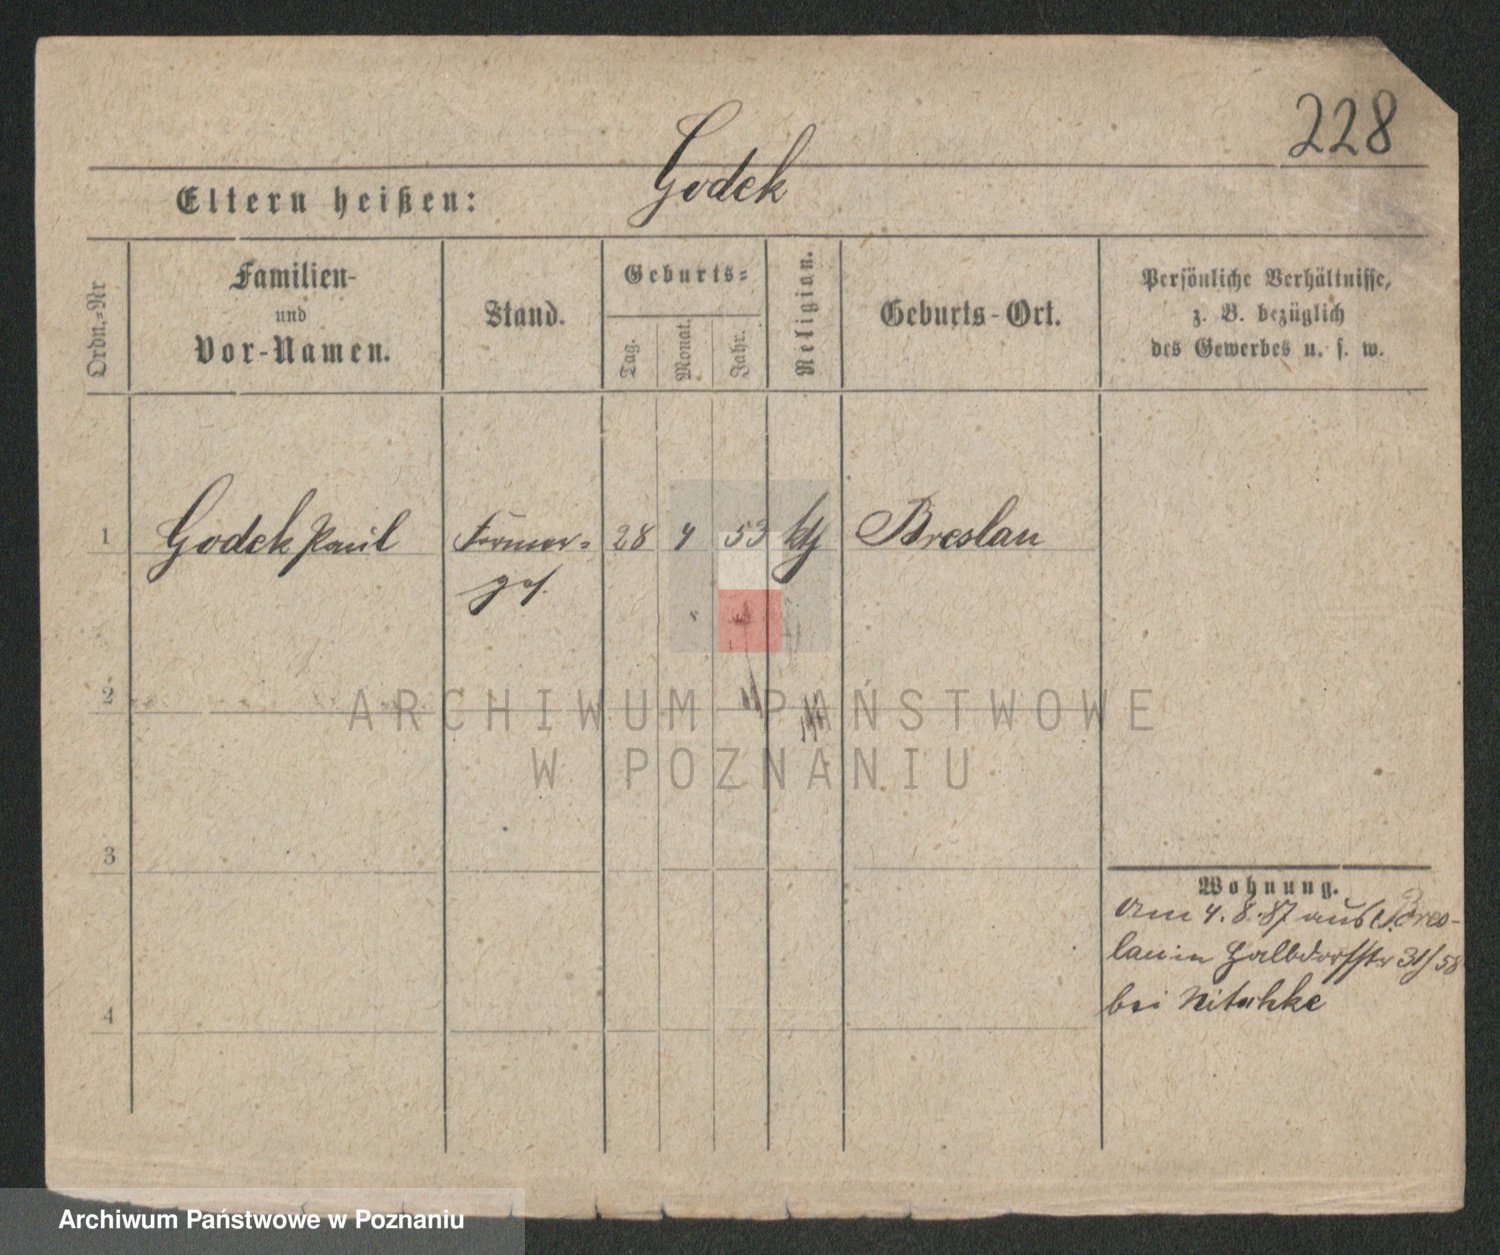 228
Eltern heißen: Godek
Ordn.=Nr
Familien-
und
Vor-Namen.
Stand.
Geburts=
Tag.
Monat.
Jahr.
Religian.
Geburts-Ort.
Persönliche Verhältnisse,
z. B. bezüglich
des Gewerbes u. s. w.
1 Godek Paul Former= 28 4 53 kth Breslau
ges.
2
ARCHIWUM PAŃSTWOWE
W POZNANIU
3
Wohnung.
Am 4.8.87 aus Bres-
lau in Halbdorfstr 31/58
4
bei Nitschke
Archiwum Państwowe w Poznaniu